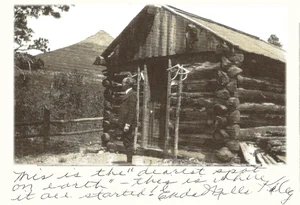 This is the "dearest spot
on earth" - this is where
it all started!